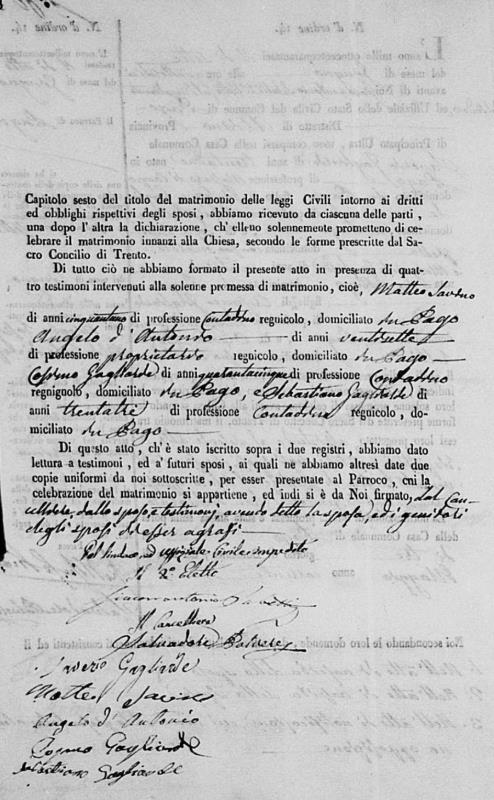 Capitolo sesto del titolo del matrimonio delle leggi Civili intorno ai dritti
ed obblighi rispettivi degli sposi, abbiamo ricevuto da ciascuna delle parti,
una dopo l'altra la dichiarazione, ch'elleno solennemente promettono di ce-
lebrare il matrimonio innanzi alla Chiesa, secondo le forme prescritte dal Sa-
cro Concilio di Trento.
Di tutto ciò ne abbiamo formato il presente atto in presenza di quat-
tro testimoni intervenuti alla solenne promessa di matrimonio, cioè, Matteo
di anni cinquantuno di professione Contadino regnicolo, domiciliato in Pago
Angelo d'Antonio di anni ventisette
di professione proprietario regnicolo, domiciliato in Pago
Cosmo Gagliarde di anni quarantacinque di professione Contadino
regnignolo, domiciliato in Pago, e Sebastiano Gagliarde di
anni trentatre di professione Contadino regnicolo, do-
miciliato in Pago
Di questo atto, ch'è stato iscritto sopra i due registri, abbiamo dato
lettura a testimoni, ed a' futuri sposi, ai quali ne abbiamo altresì date due
copie uniformi da noi sottoscritte, per esser presentate al Parroco, cui la
celebrazione del matrimonio si appartiene, ed indi si è da Noi firmato, dal Can-
celliere, dallo sposo, e testimonj, avendo detto la sposa, ed i genitori
degli sposi di esser
Pel Sindaco ed uffiziale Civile impedito
Il 2° Eletto
Il Cancelliere
Salvadore
Saverio Gagliarde
Matteo
Angelo d'Antonio
Cosmo Gagliarde
Sebastiano Gagliarde